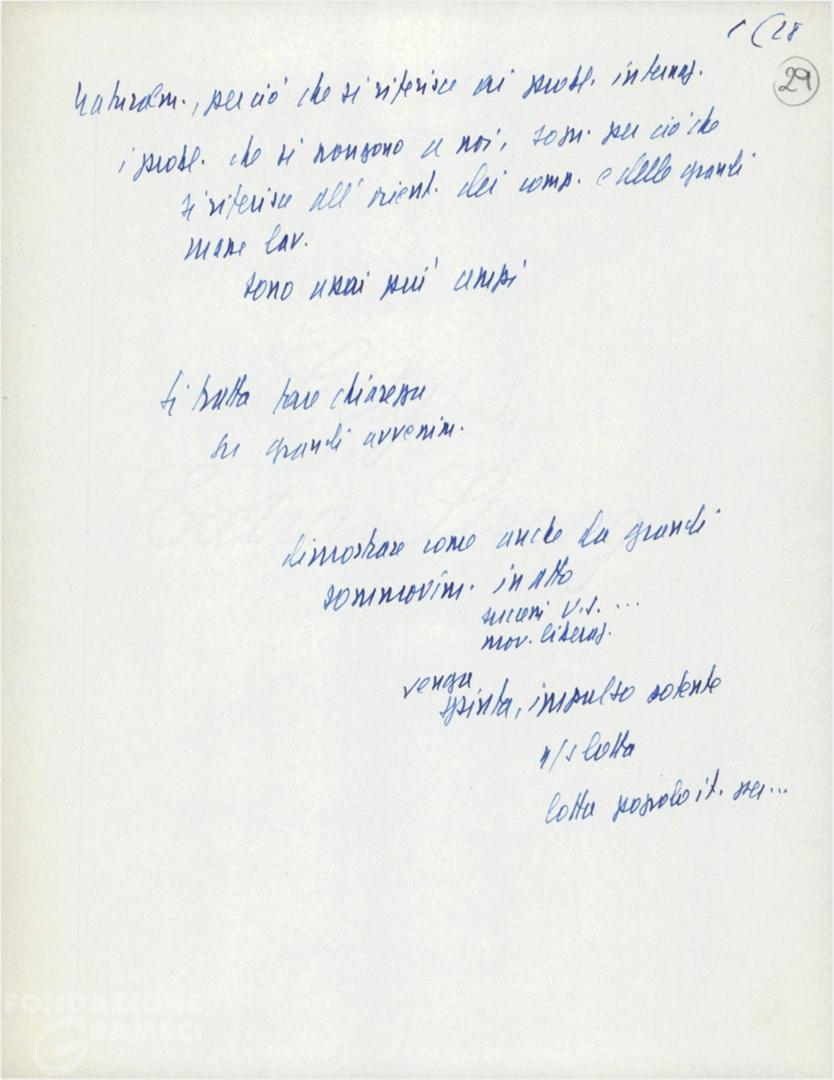 1 (28
29
Naturalm., per ciò che si riferisce ai probl. internaz.
i probl. che si pongono a noi, sopr. per ciò che
si riferisce all' orient. dei comp. e delle grandi
masse lav.
sono assai più ampi
si tratta fare chiarezza
su grandi avvenim.
dimostrare come anche da grandi
sommovim. in atto
successi U.S. ...
mov. liberaz.
venga
spinta, impulso potente
n/s lotta
lotta popolo it. per...
FONDAZIONE
GRAMSCI